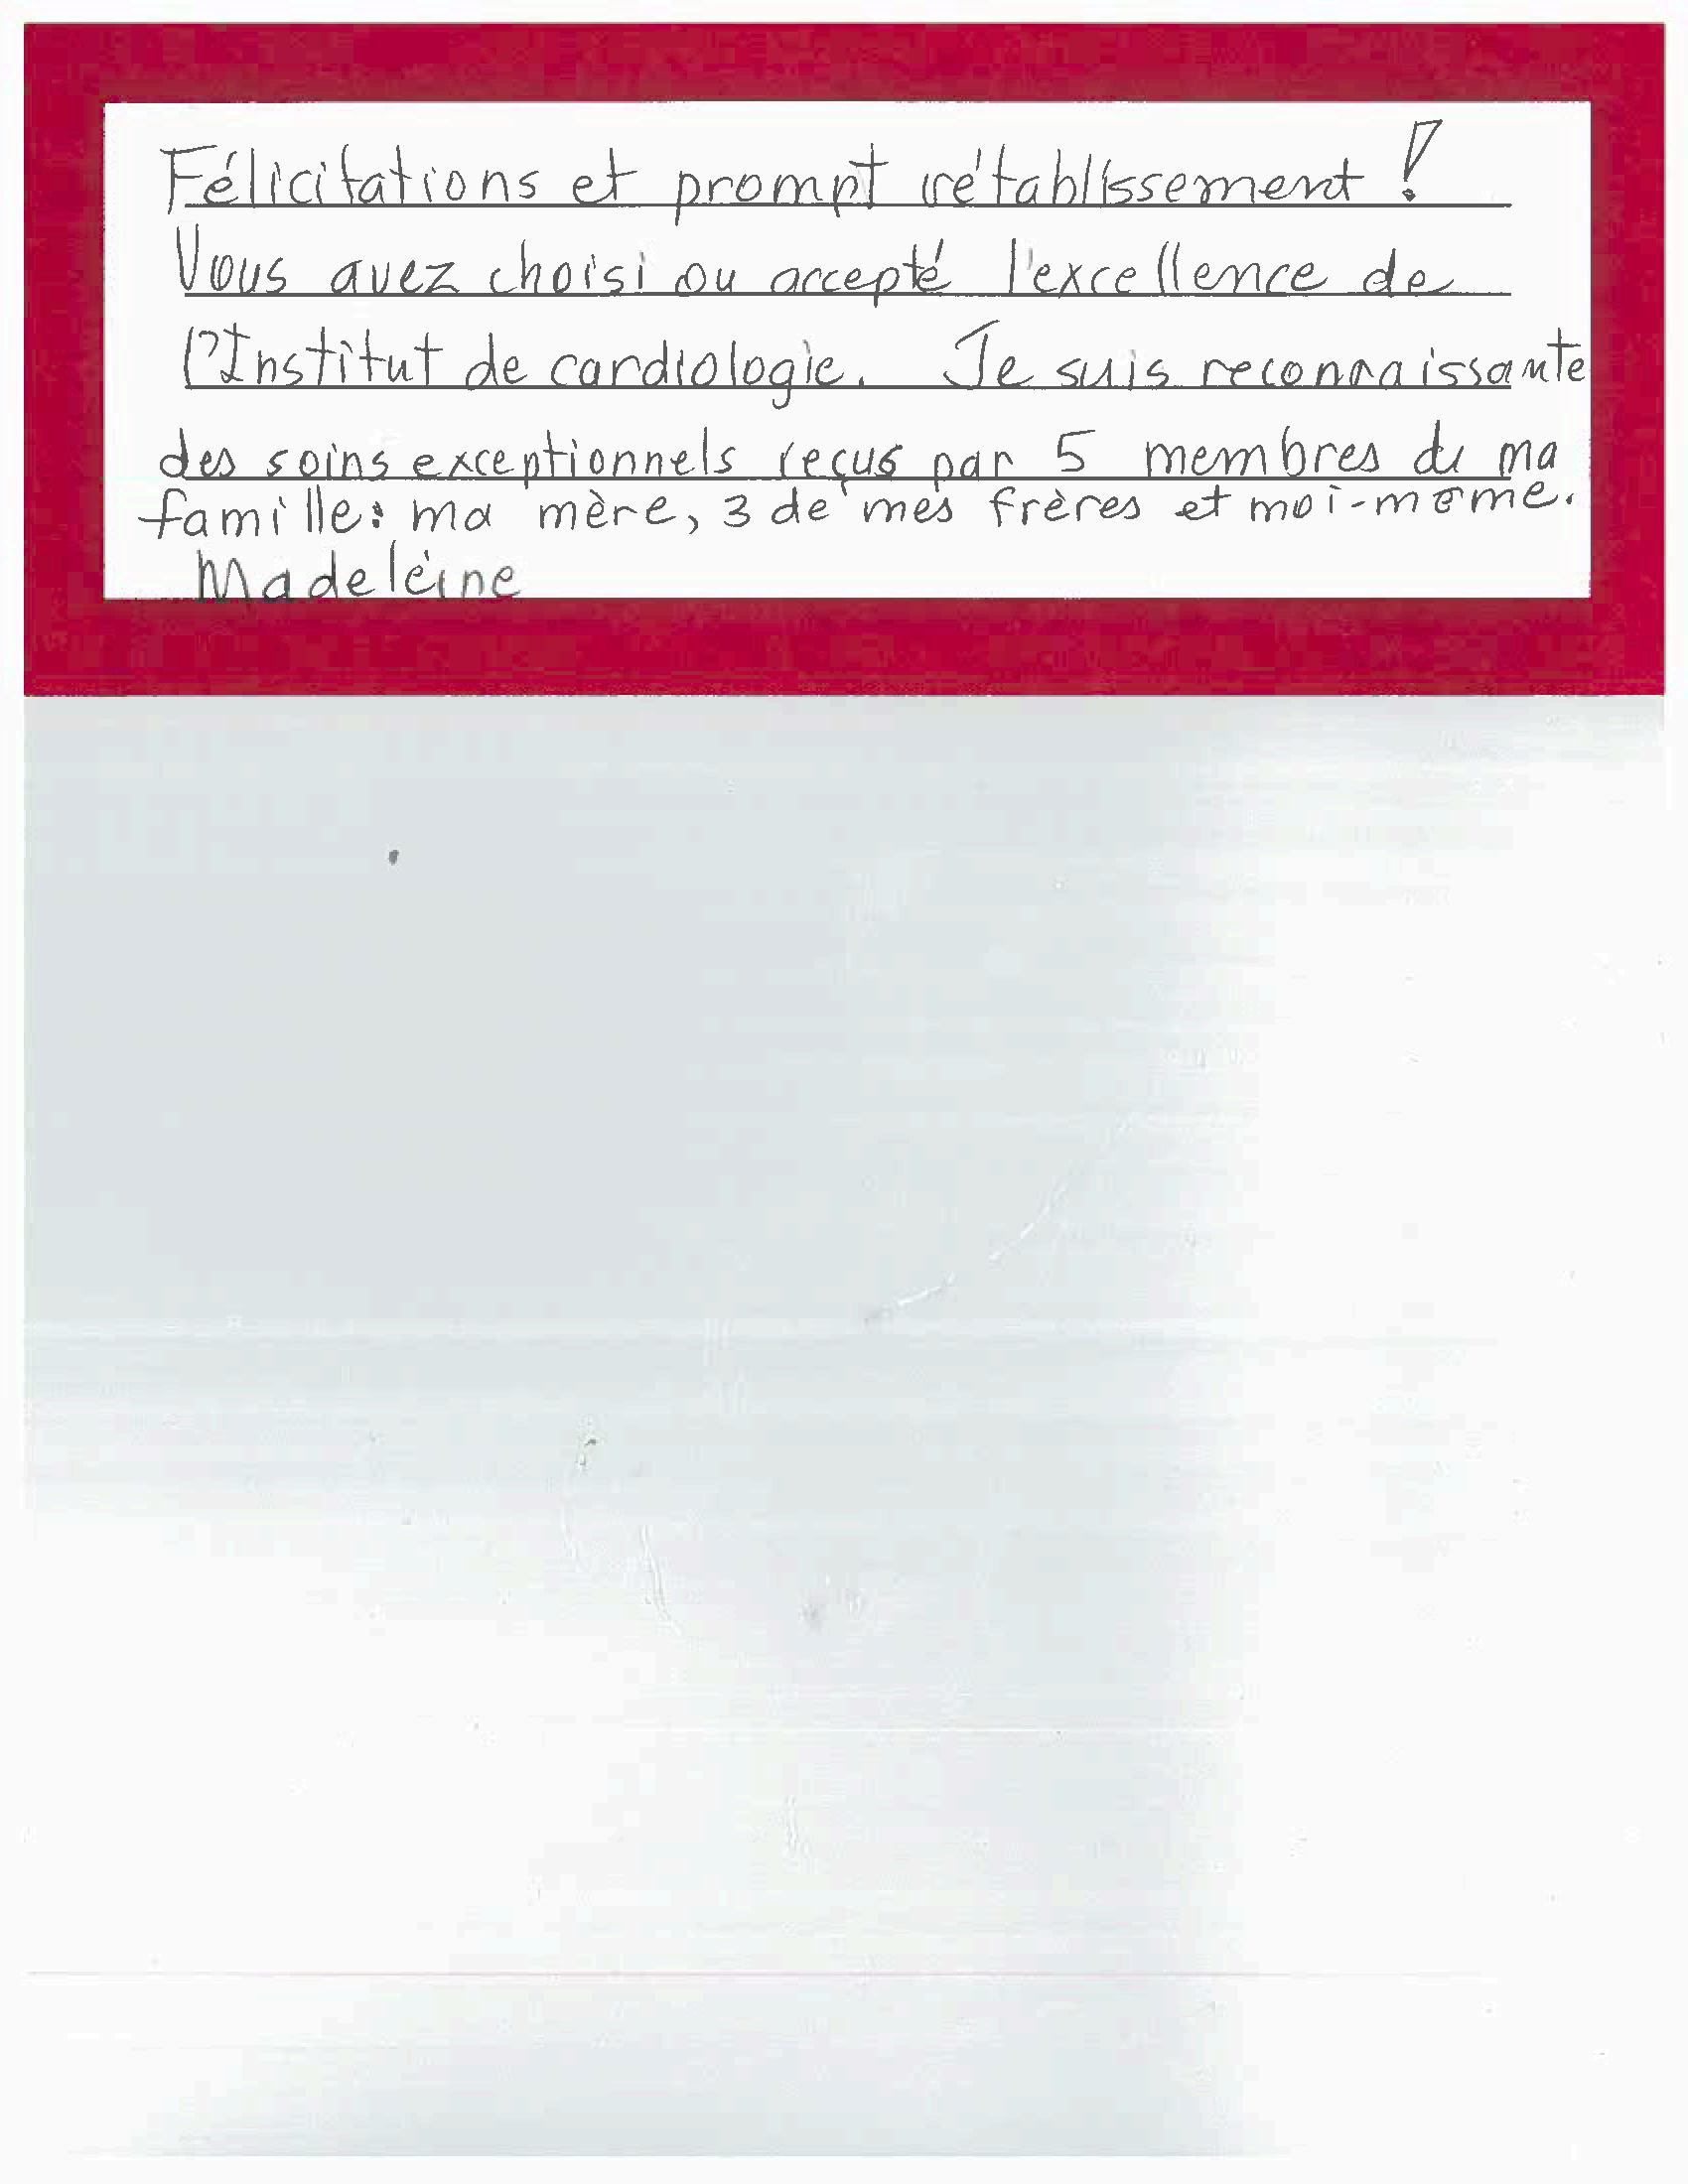 Félicitations et prompt rétablissement !
Vous avez choisi ou accepté l'excellence de
l'Institut de cardiologie. Je suis reconnaissante
des soins exceptionnels reçus par 5 membres de ma
famille : ma mère, 3 de mes frères et moi-même.
Madeleine